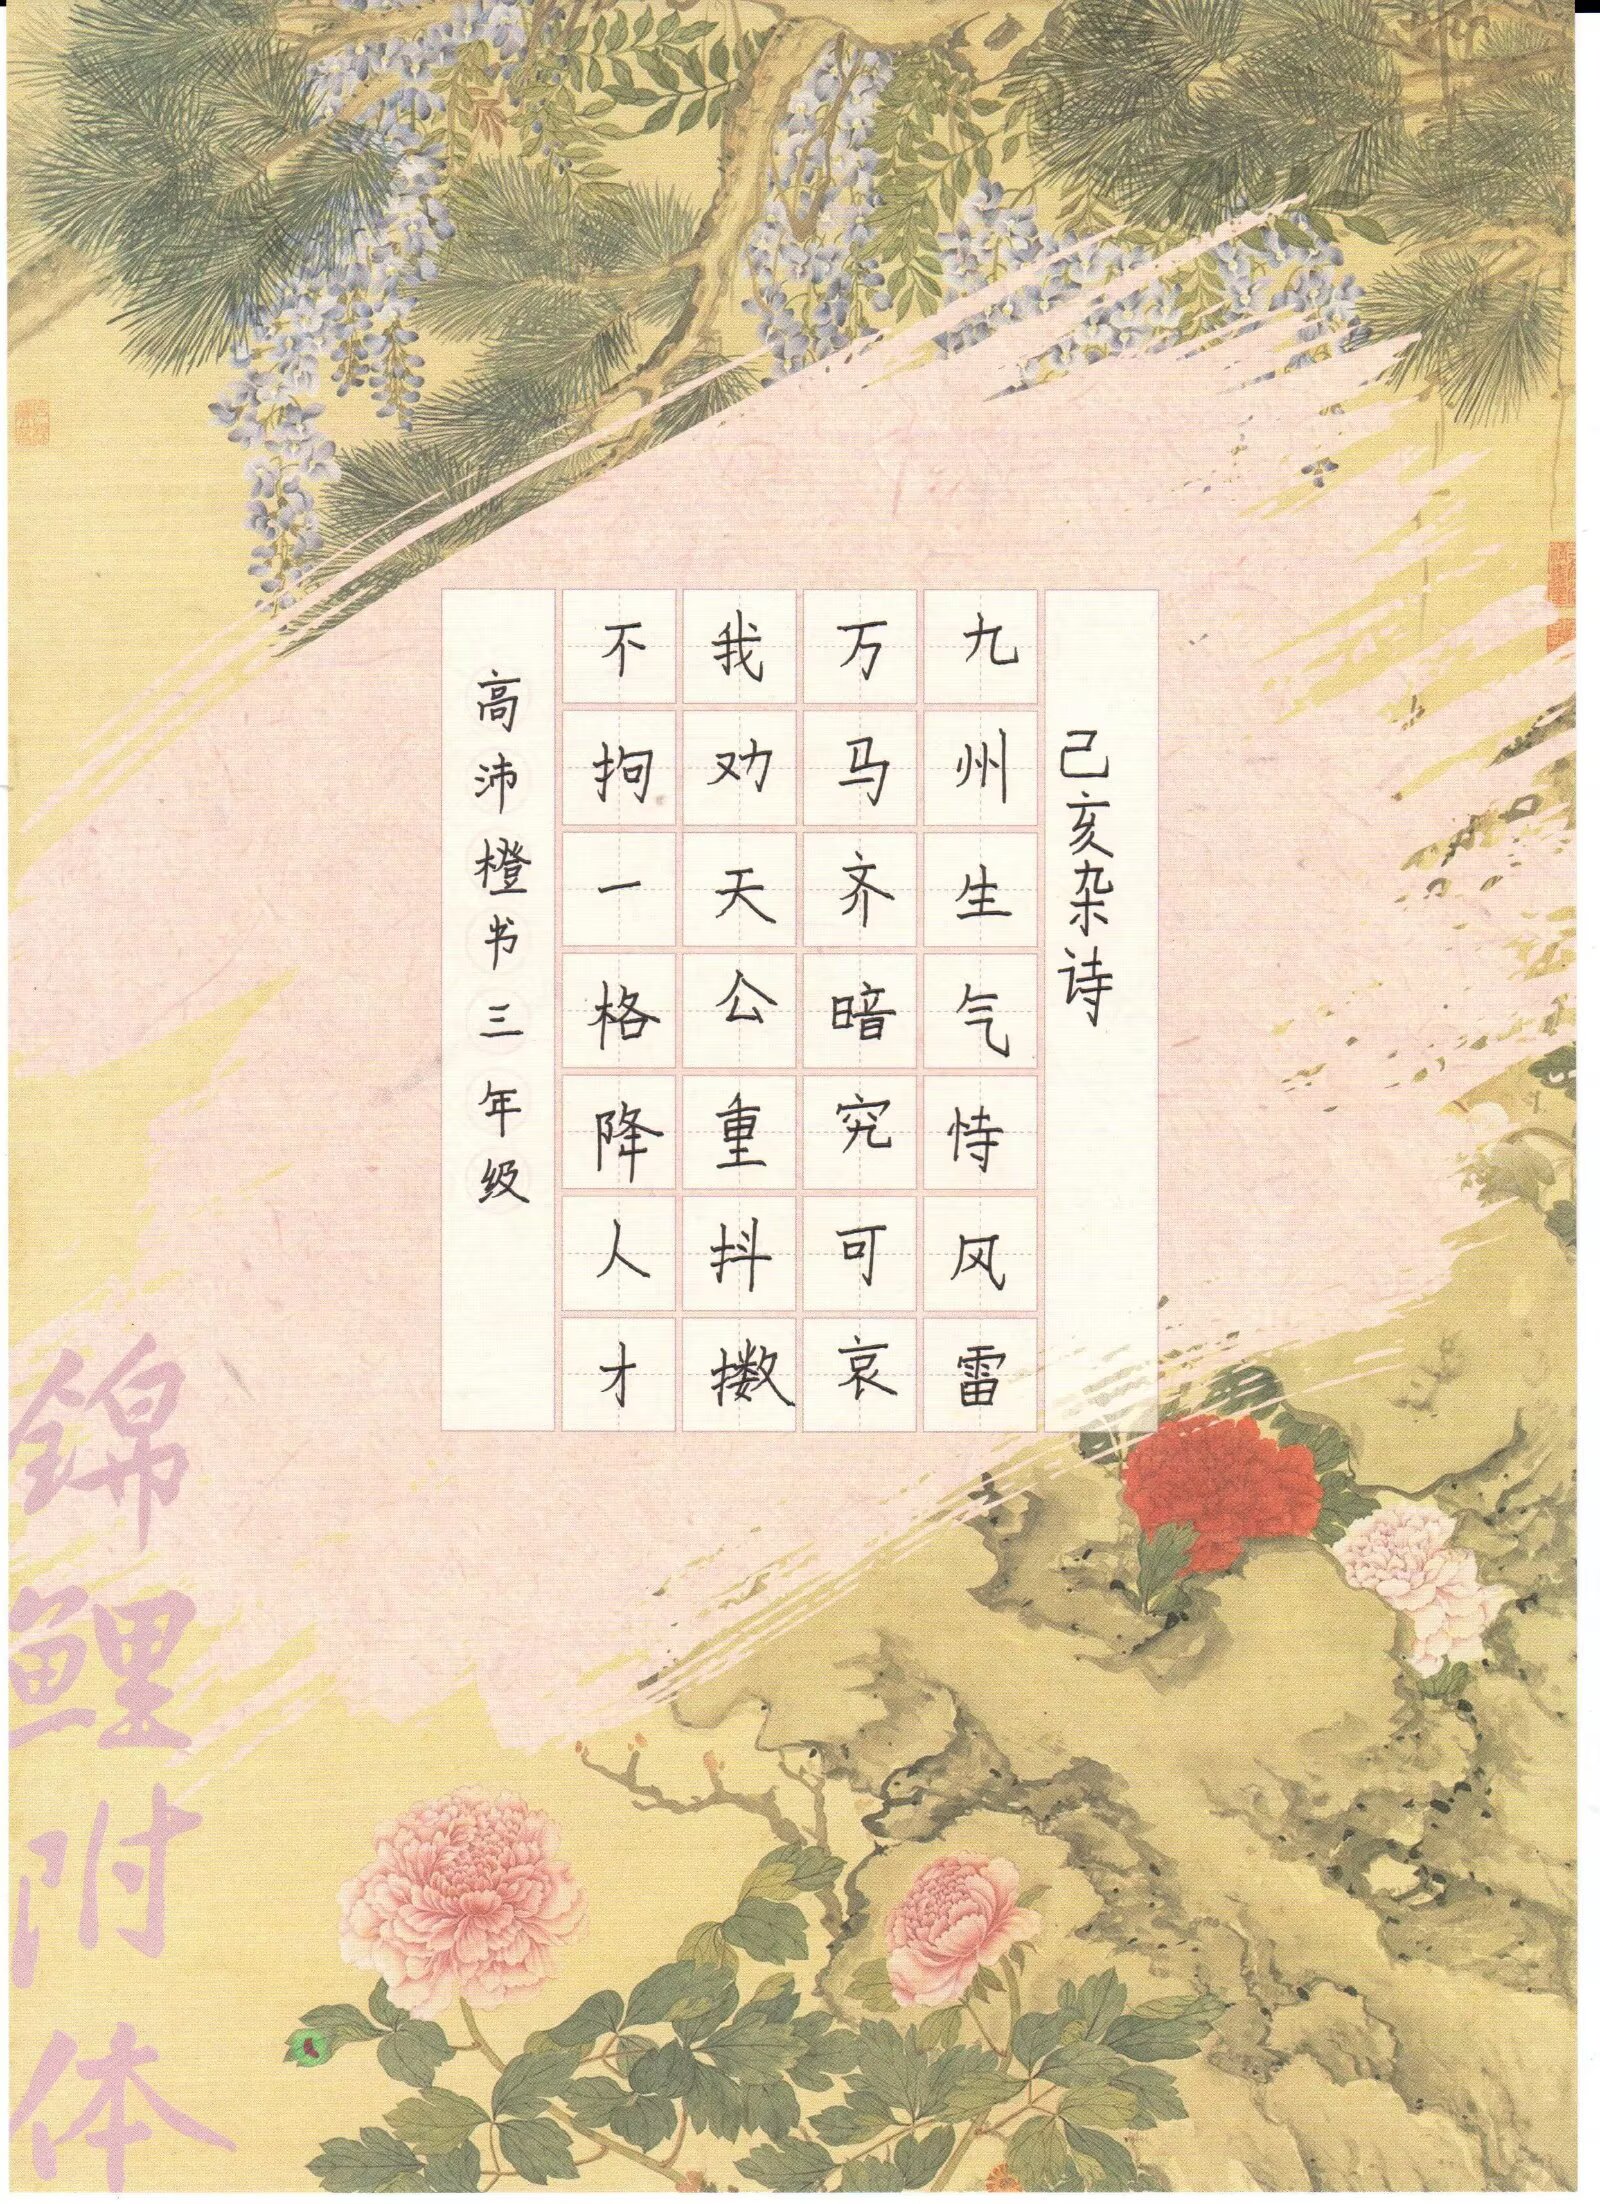 己亥杂诗
九州生气恃风雷
万马齐暗究可哀
我劝天公重抖擞
不拘一格降人才
高沛橙书三年级
锦鲤附体